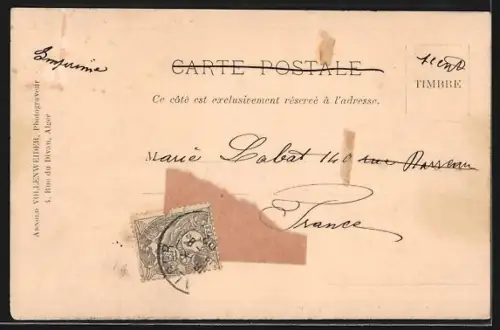 Imprimé
CARTE POSTALE
TIMBRE
Ce côté est exclusivement réservé à l'adresse.
Arnold VOLLENWEIDER, Photograveur
4, Rue du Divan, Alger
Marie Labat 140 rue
France
ALGER